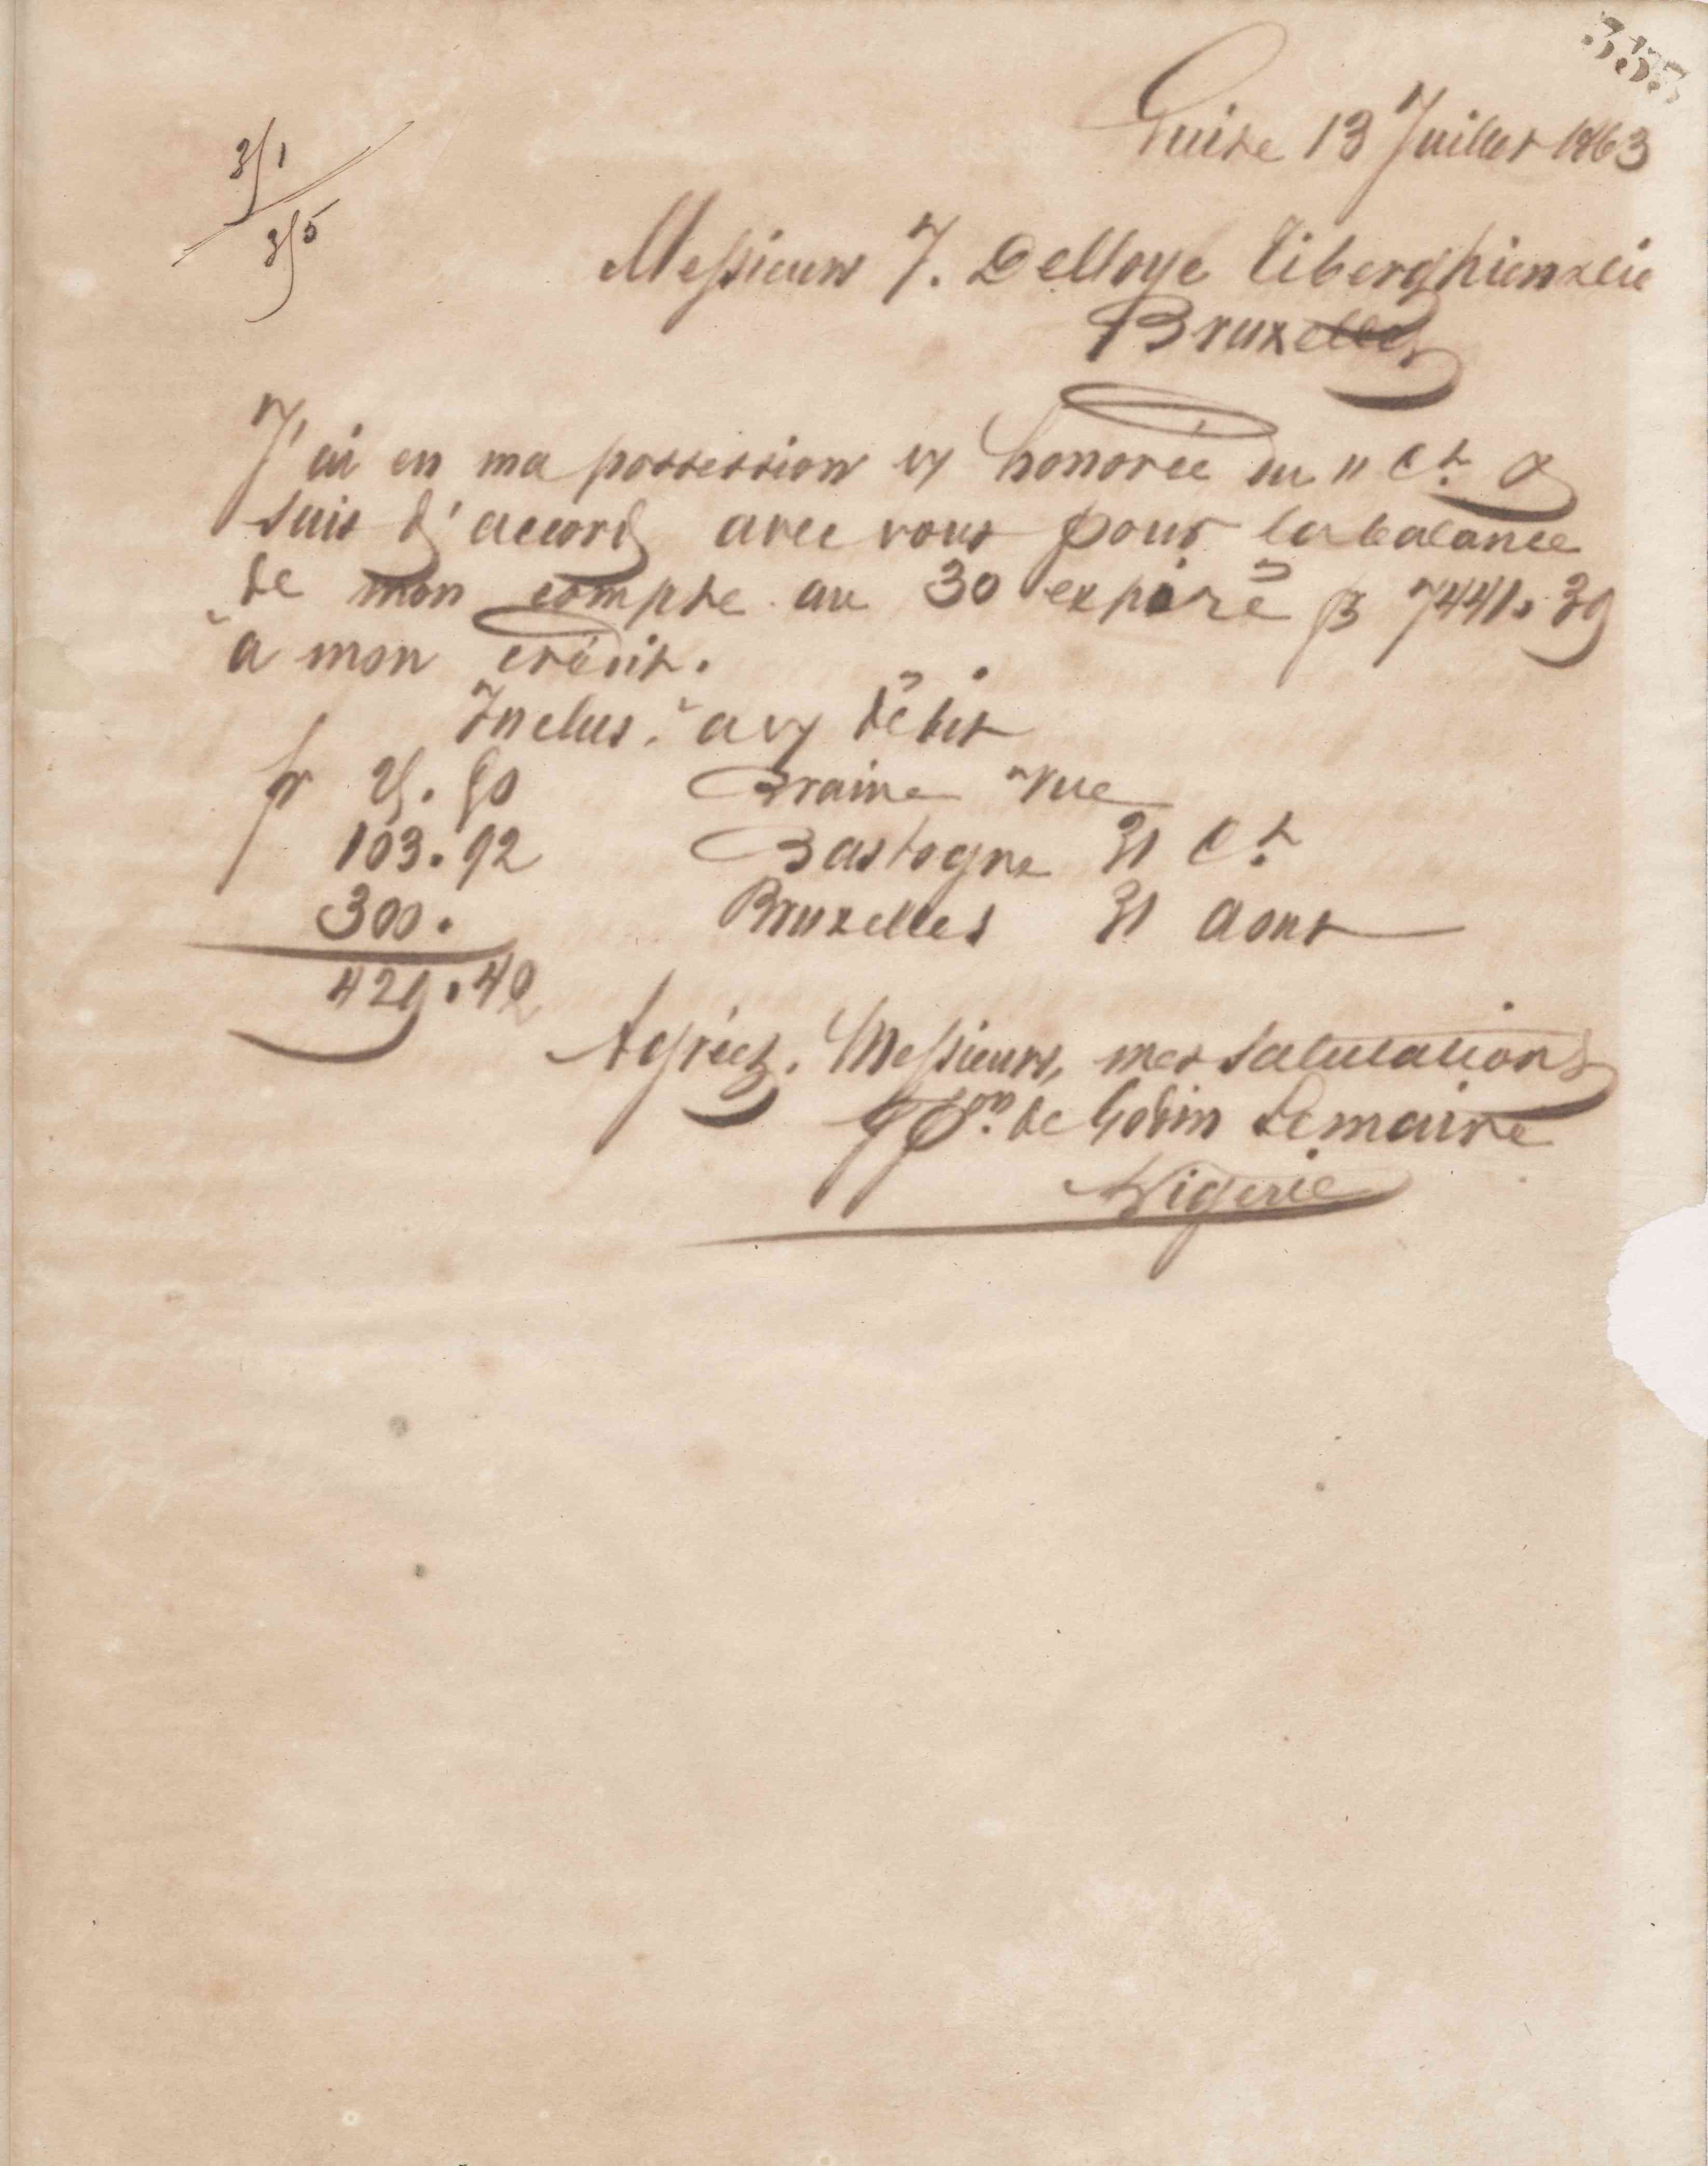 337
Guise 13 Juillet 1863
3/1
3/5
Messieurs F. Delloye Tiberghien & Cie
Bruxelles
J'ai en ma possession vf honorée du 11 Ct &
suis d'accord avec vous pour la balance
de mon compte au 30 expiré fs 7441.39
à mon crédit.
Inclus, à vf débit
fr 25.50 Braine vue
103.92 Bastogne 31 Ct
300. Bruxelles 31 Août
429.42
Agréez, Messieurs, mes salutations
ppon de Godin Lemaire